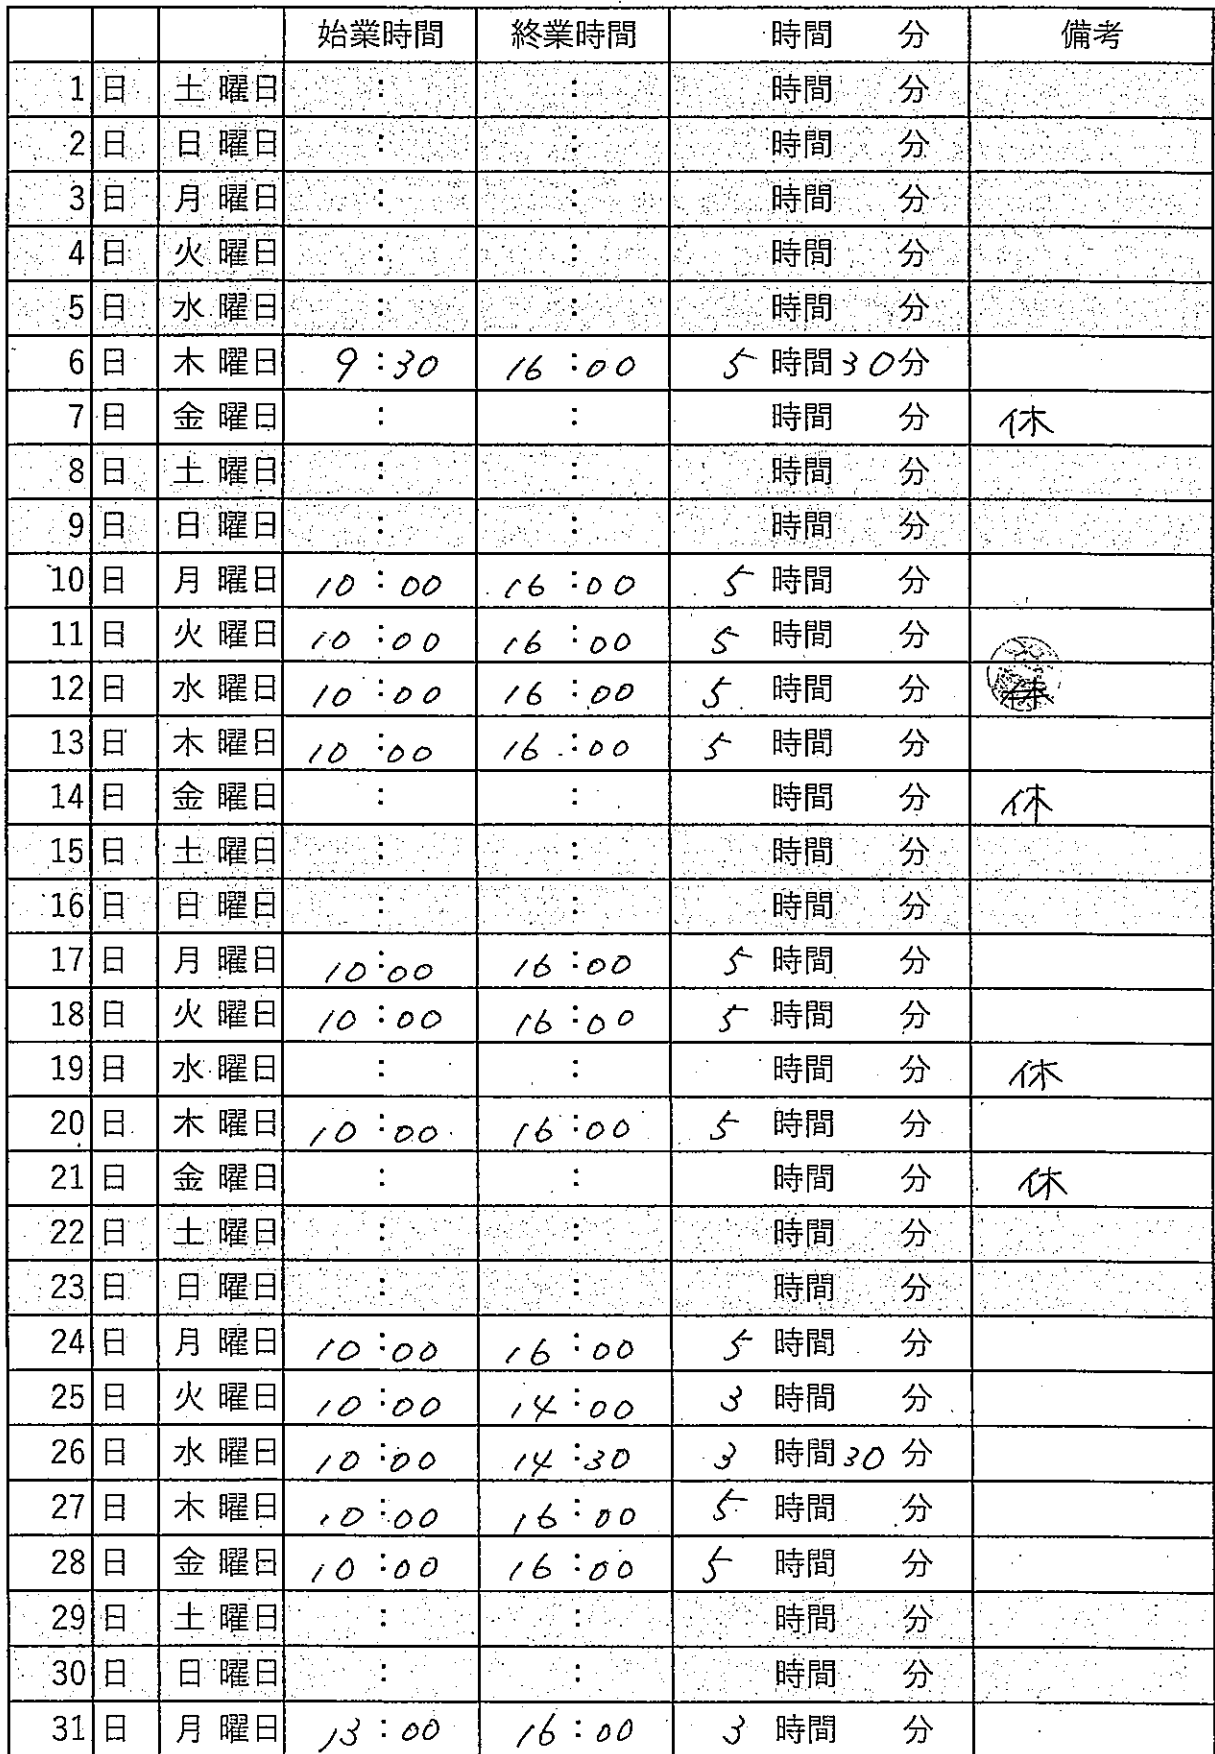 始業時間 終業時間 時間 分 備考
1 日 土 曜日 : : 時間 分
2 日 日 曜日 : : 時間 分
3 日 月 曜日 : : 時間 分
4 日 火 曜日 : : 時間 分
5 日 水 曜日 : : 時間 分
6 日 木 曜日 9:30 16:00 5 時間 30分
7 日 金 曜日 : : 時間 分 休
8 日 土 曜日 : : 時間 分
9 日 日 曜日 : : 時間 分
10 日 月 曜日 10:00 16:00 5 時間 分
11 日 火 曜日 10:00 16:00 5 時間 分
12 日 水 曜日 10:00 16:00 5 時間 分
13 日 木 曜日 10:00 16:00 5 時間 分
14 日 金 曜日 : : 時間 分 休
15 日 土 曜日 : : 時間 分
16 日 日 曜日 : : 時間 分
17 日 月 曜日 10:00 16:00 5 時間 分
18 日 火 曜日 10:00 16:00 5 時間 分
19 日 水 曜日 : : 時間 分 休
20 日 木 曜日 10:00 16:00 5 時間 分
21 日 金 曜日 : : 時間 分 休
22 日 土 曜日 : : 時間 分
23 日 日 曜日 : : 時間 分
24 日 月 曜日 10:00 16:00 5 時間 分
25 日 火 曜日 10:00 14:00 3 時間 分
26 日 水 曜日 10:00 14:30 3 時間 30 分
27 日 木 曜日 10:00 16:00 5 時間 分
28 日 金 曜日 10:00 16:00 5 時間 分
29 日 土 曜日 : : 時間 分
30 日 日 曜日 : : 時間 分
31 日 月 曜日 13:00 16:00 3 時間 分